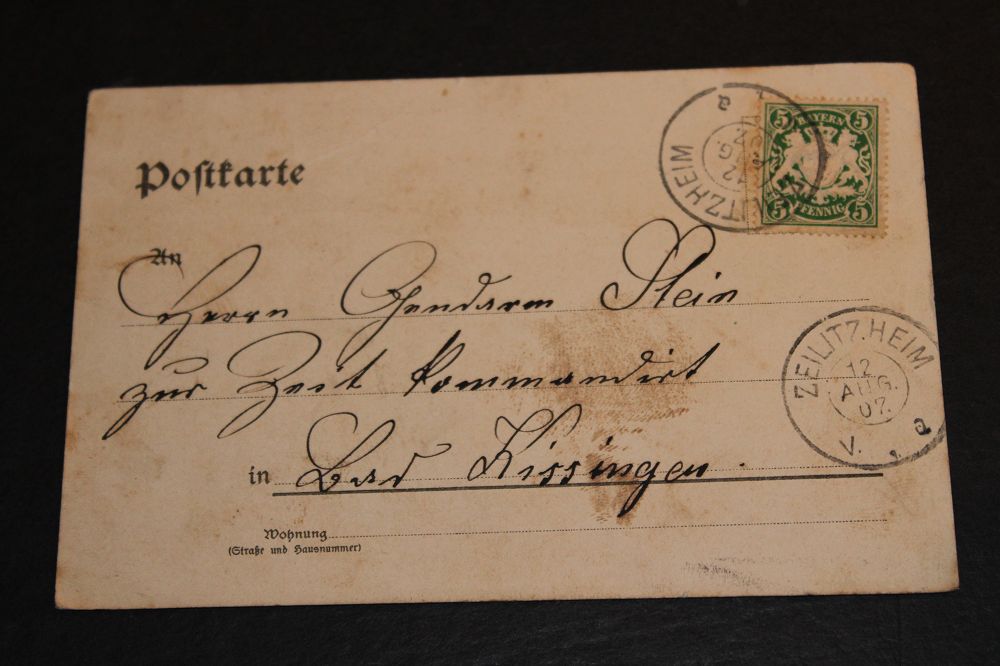 Postkarte
5 BAYERN 5
5 PFENNIG 5
ZEILITZHEIM
12
AUG.
An
Herrn Gendarm Stein
zur Zeit kommandirt
in Bad Kissingen.
ZEILITZHEIM
12
AUG.
07.
V. a
Wohnung
(Straße und Hausnummer)